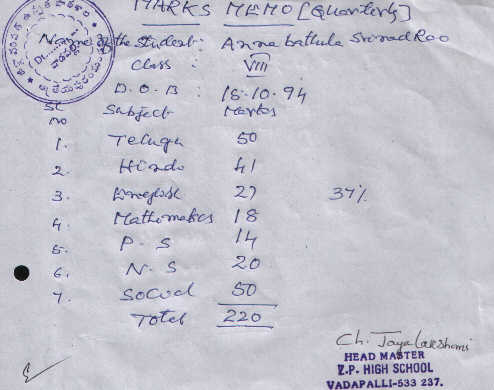 MARKS MEMO [Quarterly]
of the Student : Annabathula Srinad Rao
class : VIII
D.O.B : 18.10.94
Sl no Subject Marks
1. Telugu 50
2. Hindi 41
3. English 27 37%
4. Mathematics 18
5. P.S 14
6. N.S 20
7. Social 50
Total 220
Ch. Jayalakshmi
HEAD MASTER
Z.P. HIGH SCHOOL
VADAPALLI-533 237.